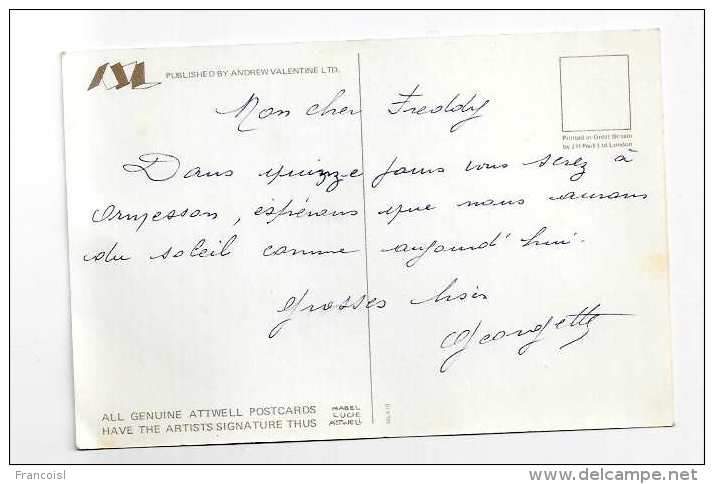 PUBLISHED BY ANDREW VALENTINE LTD.
Printed in Great Britain
by J H Paull Ltd London
Mon cher Freddy
Dans quinze jours vous serez à
Ormesson, espérons que nous aurons
du soleil comme aujourd'hui.
Grosses bises
Georgette
ALL GENUINE ATTWELL POSTCARDS
HAVE THE ARTISTS SIGNATURE THUS
MABEL
LUCIE
ATTWELL
Francoisl
www.delcampe.net